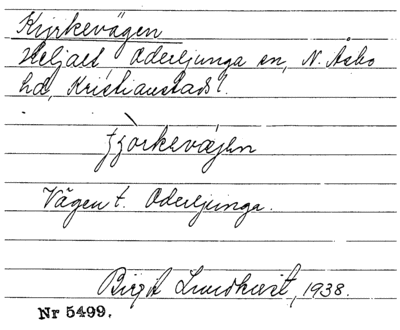 Kyrkevägen
Heljalt Oderljunga sn, N. Åsbo
hd, Kristianstads l.
Vägen t. Oderljunga.
Birgit Lundkvist, 1938.
Nr 5499.